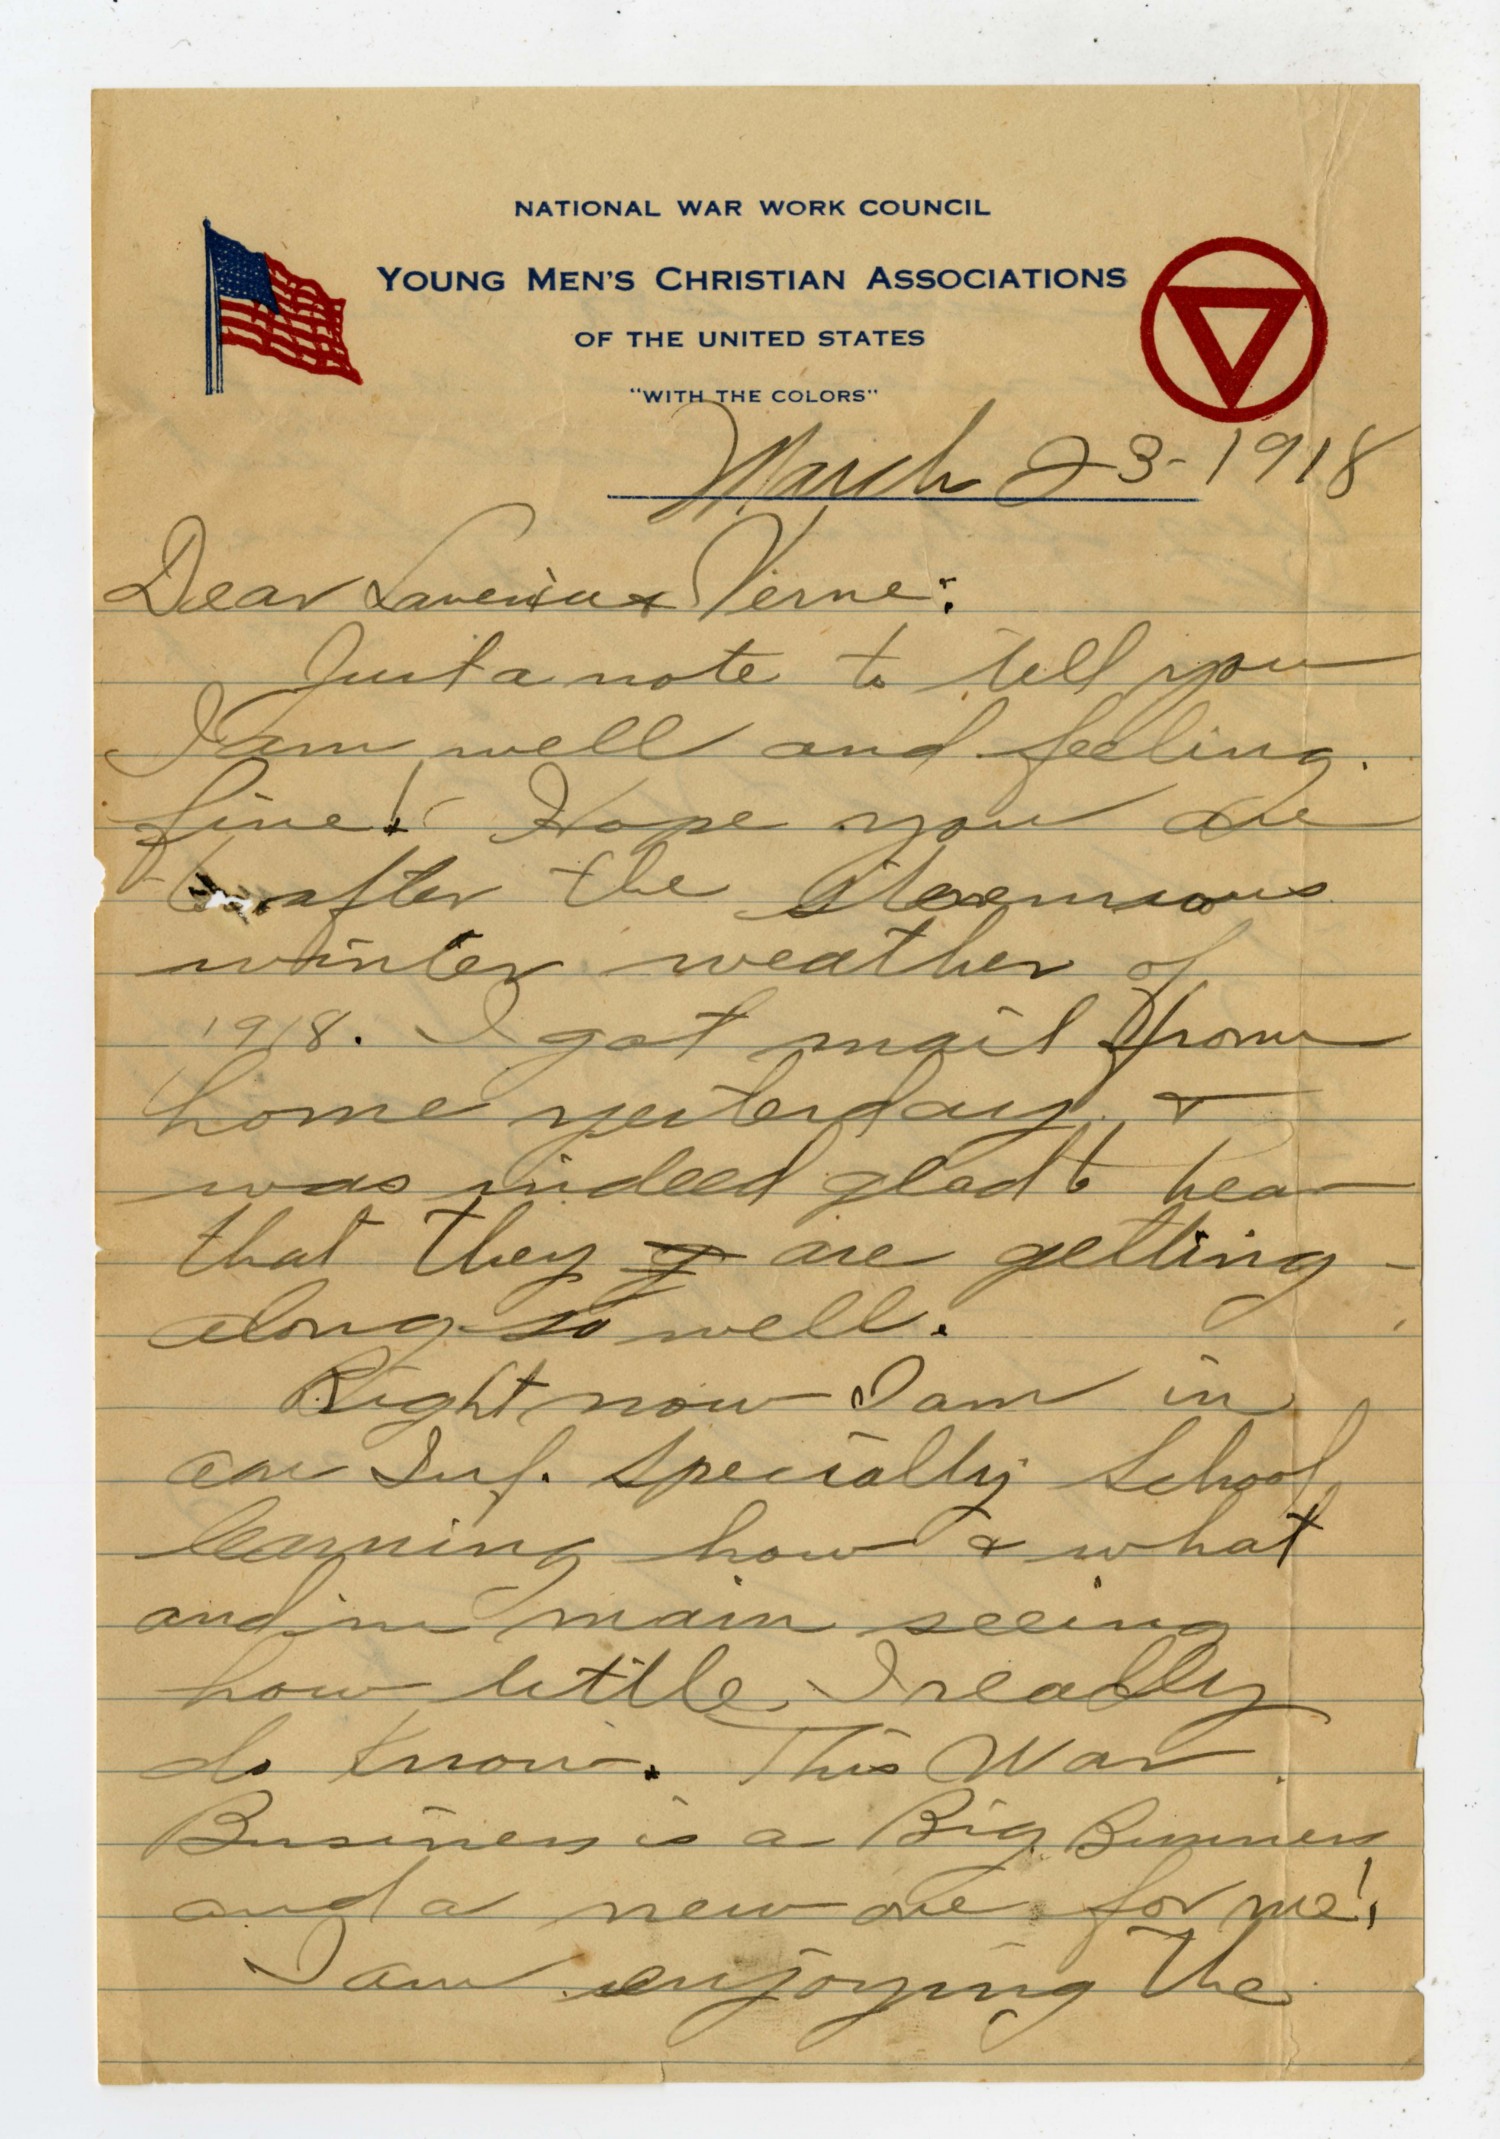 NATIONAL WAR WORK COUNCIL
YOUNG MEN'S CHRISTIAN ASSOCIATIONS
OF THE UNITED STATES
"WITH THE COLORS"
March 23-1918
Dear & Verne:
Just a note to tell you
I am well and feeling
fine! Hope you are
after the
winter weather of
1918. I got mail from
home yesterday &
was indeed glad to hear
that they are getting
along so well.
Right now I am in
an Inf. Specialty School
learning how & what
and in main seeing
how little I really
do know. This War
Business is a Big Business
and a new one for me!
I am enjoying the